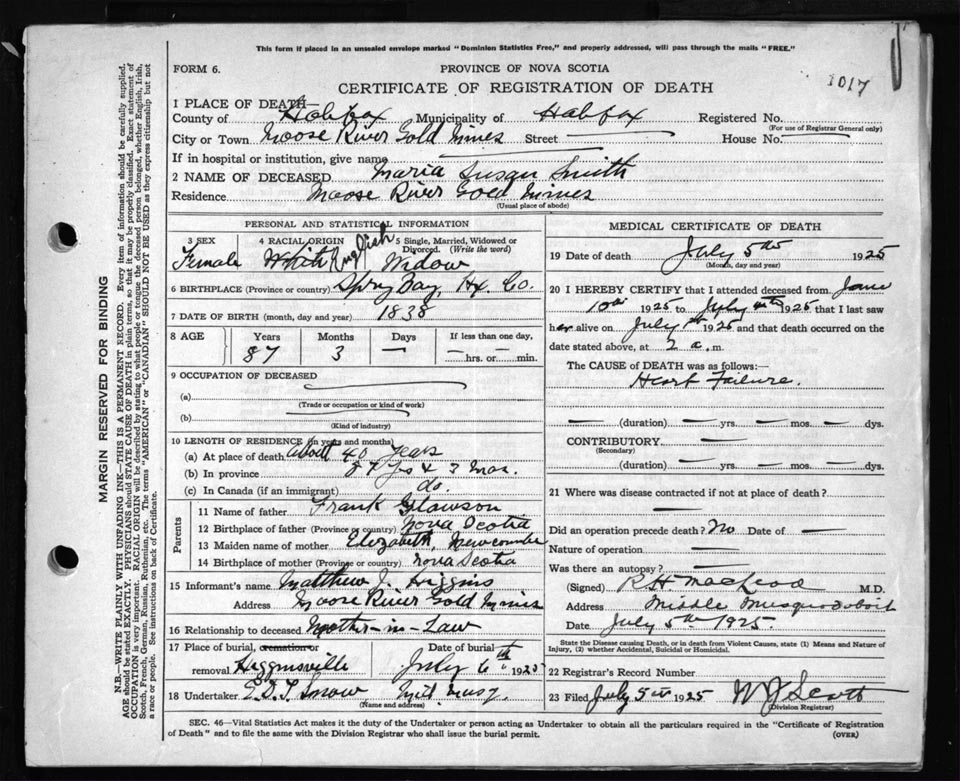 This form if placed in an unsealed envelope marked "Dominion Statistics Free," and properly addressed, will pass through the mails "FREE."
FORM 6.
PROVINCE OF NOVA SCOTIA
1017
CERTIFICATE OF REGISTRATION OF DEATH
1 PLACE OF DEATH—
County of Halifax Municipality of Halifax Registered No.
(For use of Registrar General only)
City or Town Moose River Gold Mines Street House No.
If in hospital or institution, give name
2 NAME OF DECEASED Maria Susan Smith
Residence Moose River Gold Mines
(Usual place of abode)
PERSONAL AND STATISTICAL INFORMATION
3 SEX 4 RACIAL ORIGIN 5 Single, Married, Widowed or Divorced. (Write the word)
Female White English Widow
6 BIRTHPLACE (Province or country) Spry Bay, Hx. Co.
7 DATE OF BIRTH (month, day and year) 1838
8 AGE Years Months Days If less than one day,
87 3 — — hrs. or — min.
9 OCCUPATION OF DECEASED
(a)
(Trade or occupation or kind of work)
(b)
(Kind of industry)
10 LENGTH OF RESIDENCE (in years and months)
(a) At place of death about 40 years
(b) In province 87 yrs & 3 mos.
(c) In Canada (if an immigrant) do.
Parents
11 Name of father Frank Glawson
12 Birthplace of father (Province or country) Nova Scotia
13 Maiden name of mother Elizabeth Newcombe
14 Birthplace of mother (Province or country) Nova Scotia
15 Informant's name Matthew J. Higgins
Address Moose River Gold Mines
16 Relationship to deceased Mother-in-Law
17 Place of burial, cremation or removal Higginsville July 6th 1925
18 Undertaker E. D. Snow
(Name and address)
MEDICAL CERTIFICATE OF DEATH
19 Date of death July 5th 1925
(Month, day and year)
20 I HEREBY CERTIFY that I attended deceased from June
1925 to July 1925 that I last saw
her alive on July 1925 and that death occurred on the
date stated above, at 2 a.m.
The CAUSE of DEATH was as follows:—
Heart Failure.
— (duration) — yrs. — mos. — dys.
CONTRIBUTORY —
(Secondary)
(duration) — yrs. — mos. — dys.
21 Where was disease contracted if not at place of death?
—
Did an operation precede death? No Date of —
Nature of operation —
Was there an autopsy? —
(Signed) R H MacLeod M.D.
Address Middle Musquodoboit
Date July 5th 1925.
State the Disease causing Death, or in death from Violent Causes, state (1) Means and Nature of Injury, (2) whether Accidental, Suicidal or Homicidal.
22 Registrar's Record Number
23 Filed July 5th 1925 W J Scott
(Division Registrar)
SEC. 46—Vital Statistics Act makes it the duty of the Undertaker or person acting as Undertaker to obtain all the particulars required in the "Certificate of Registration
of Death" and to file the same with the Division Registrar who shall issue the burial permit.
(OVER)
MARGIN RESERVED FOR BINDING
N.B.—WRITE PLAINLY, WITH UNFADING INK—THIS IS A PERMANENT RECORD. Every item of information should be carefully supplied.
AGE should be stated EXACTLY. PHYSICIANS should STATE CAUSE OF DEATH in plain terms, so that it may be properly classified. Exact statement of
OCCUPATION is very important. RACIAL ORIGIN will be described by stating to what people or tongue the deceased person belonged, whether English, Irish,
Scotch, French, German, Russian, Ruthenian, etc. The terms "AMERICAN" or "CANADIAN" SHOULD NOT BE USED as they express citizenship but not
a race or people. See instructions on back of Certificate.